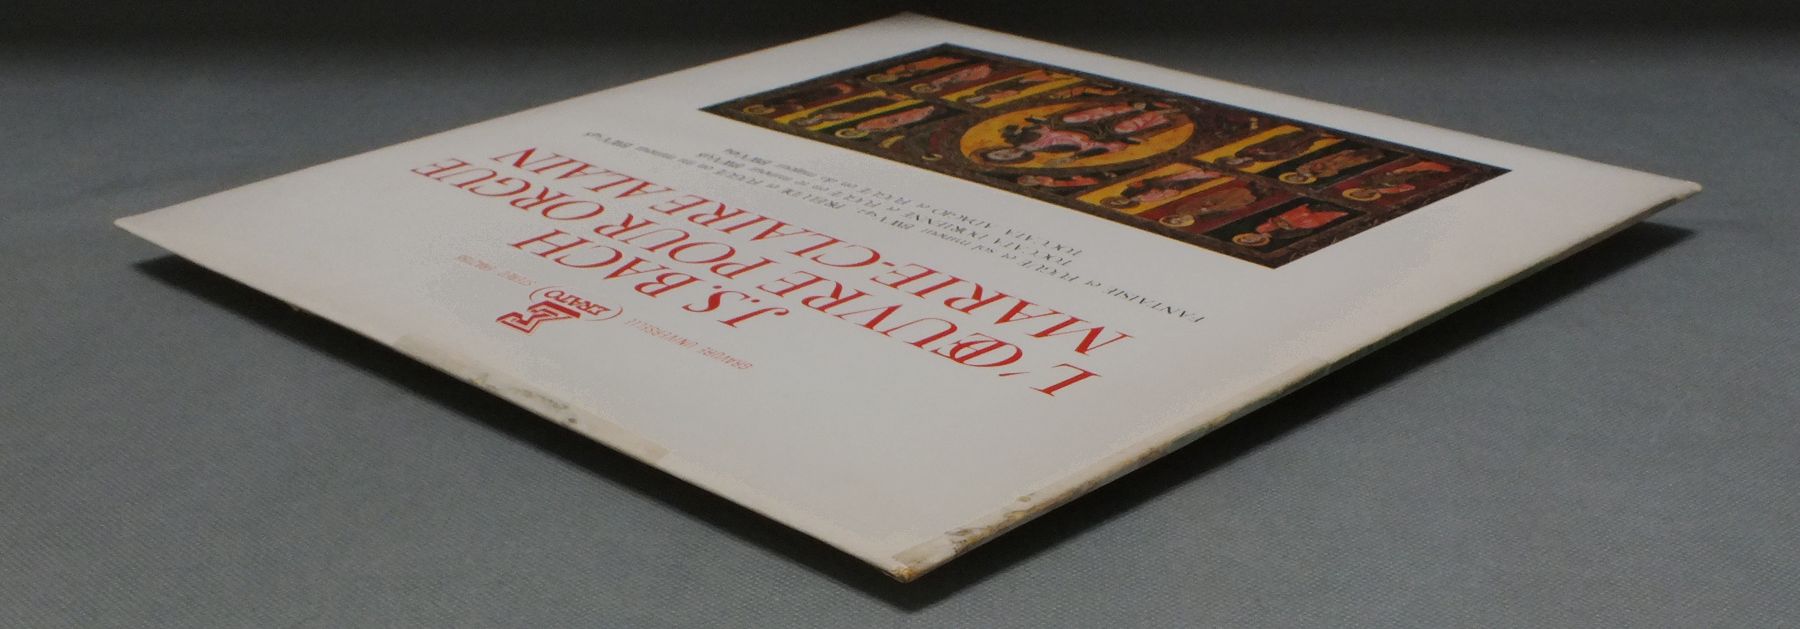 GRAVURE UNIVERSELLE ERATO STEREO
J.S. BACH
L'ŒUVRE POUR ORGUE
MARIE-CLAIRE ALAIN
FANTAISIE et FUGUE en sol mineur BWV 542 PRELUDE et FUGUE en mineur BWV
TOCCATA DORIENNE et FUGUE en ré mineur BWV 538
TOCCATA, ADAGIO et FUGUE en do majeur BWV 564